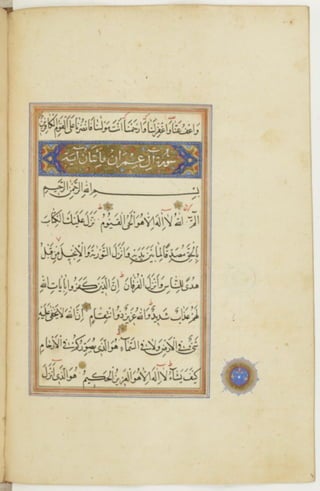 واعف عنا واغفر لنا وارحمنا انت مولنا فانصرنا على القوم الكافرين
سورة آل عمران مائتان آية
بسم الله الرحمن الرحيم
الم الله لا اله الا هو الحي القيوم نزل عليك الكتاب
بالحق مصدقا لما بين يديه وانزل التورية والانجيل من قبل
هدى للناس وانزل الفرقان ان الذين كفروا بايات الله
لهم عذاب شديد والله عزيز ذو انتقام ان الله لا يخفى عليه
شيء في الارض ولا في السماء هو الذي يصوركم في الارحام
كيف يشاء لا اله الا هو العزيز الحكيم هو الذي انزل